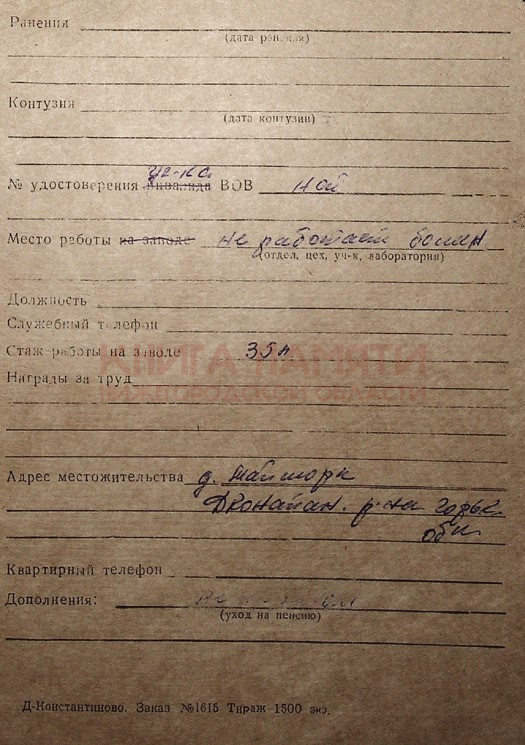 Ранения
(дата ранения)
Контузия
(дата контузии)
уч-ка
№ удостоверения Инвалида ВОВ
Место работы на заводе не работает болен
(отдел, цех, уч-к, лаборатория)
Должность
Служебный телефон
Стаж работы на заводе 35 л
КНИГА ПАМЯТИ
Награды за труд
НИЖЕГОРОДСКОЙ ОБЛАСТИ
Адрес местожительства д.
р-на Горьк.
обл.
Квартирный телефон
Дополнения:
(уход на пенсию)
Д-Константиново. Заказ №1615 Тираж 1500 экз.